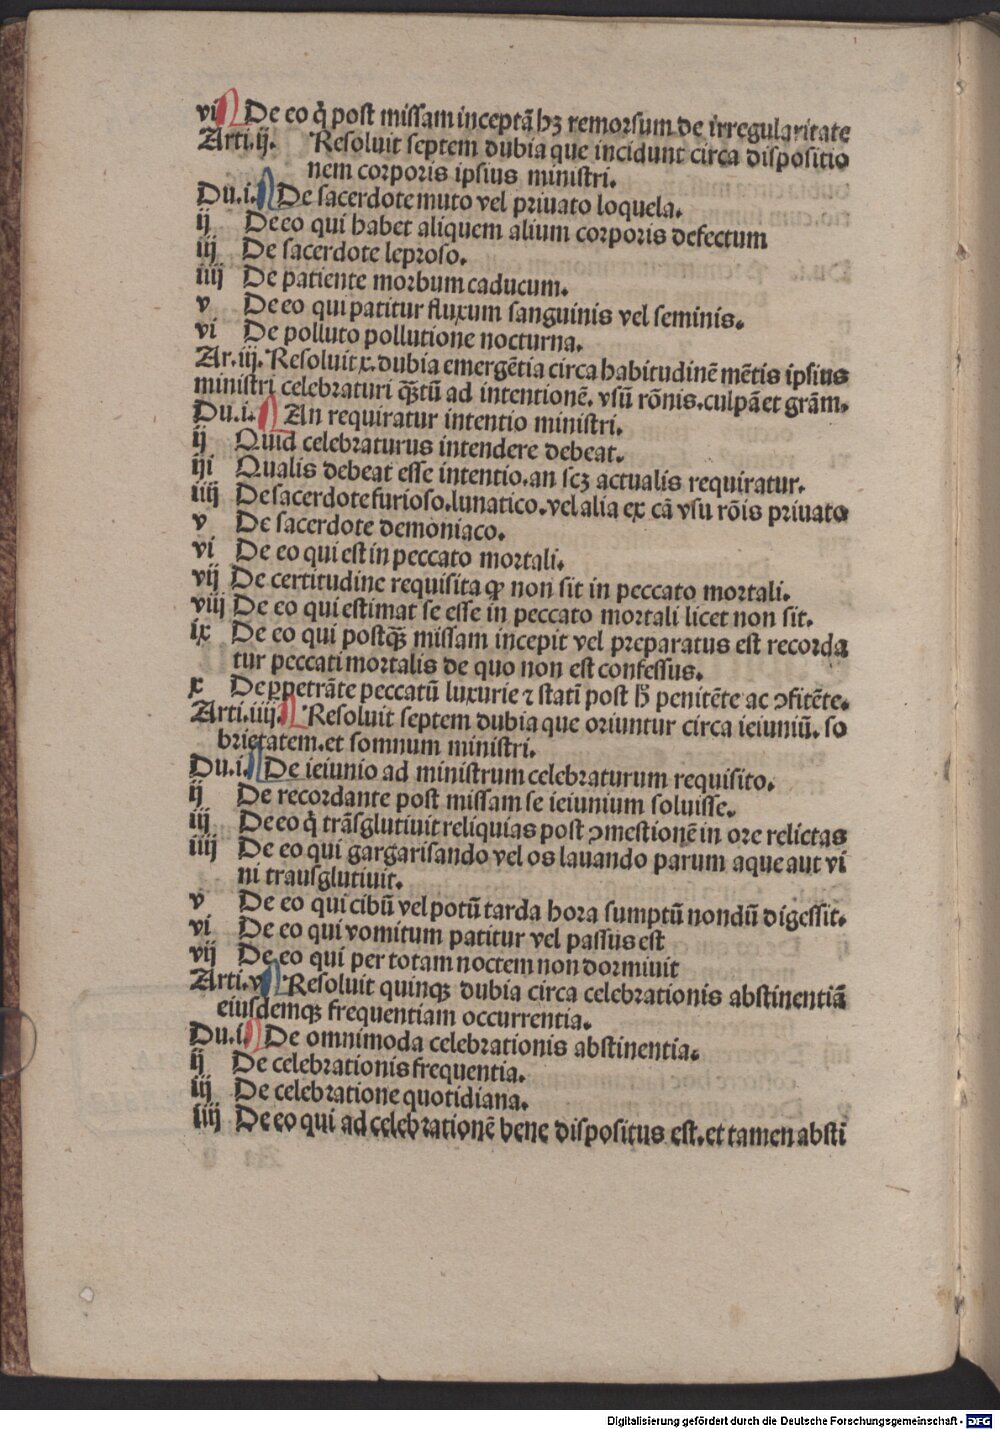 vi De eo q̇ post missam inceptā hꝫ remorsum de irregularitate
Arti.ij. Resoluit septem dubia que incidunt circa dispositio
nem corporis ipsius ministri.
Du.i. De sacerdote muto vel priuato loquela.
ij De eo qui habet aliquem alium corporis defectum
iij De sacerdote leproso.
iiij De patiente morbum caducum.
v De eo qui patitur fluxum sanguinis vel seminis.
vi De polluto pollutione nocturna.
Ar.iij. Resoluit x. dubia emergētia circa habitudinē mētis ipsius
ministri celebraturi quātū ad intentionē. vsū rōnis.culpā et grām.
Du.i. An requiratur intentio ministri.
ij Quid celebraturus intendere debeat.
iij Qualis debeat esse intentio.an scꝫ actualis requiratur.
iiij De sacerdote furioso.lunatico.vel alia ex cā vsu rōis priuato
v De sacerdote demoniaco.
vi De eo qui est in peccato mortali.
vij De certitudine requisita ꝙ non sit in peccato mortali.
viij De eo qui estimat se esse in peccato mortali licet non sit.
ix De eo qui postq̄ꝫ missam incepit vel preparatus est recorda
tur peccati mortalis de quo non est confessus.
x De ꝑpetrāte peccatū luxurie ⁊ statī post h̄ penitēte ac ↄfitēte.
Arti.iiij. Resoluit septem dubia que oriuntur circa ieiuniū. so
brietatem.et somnum ministri.
Du.i. De ieiunio ad ministrum celebraturum requisito.
ij De recordante post missam se ieiunium soluisse.
iij De eo q̇ trāsglutiuit reliquias post ↄmestionē in ore relictas
iiij De eo qui gargarisando vel os lauando parum aque aut vi
ni transglutiuit.
v De eo qui cibū vel potū tarda hora sumptū nondū digessit.
vi De eo qui vomitum patitur vel passus est
vij De eo qui per totam noctem non dormiuit
Arti.v Resoluit quinqꝫ dubia circa celebrationis abstinentiā
eiusdemqꝫ frequentiam occurrentia.
Du.i. De omnimoda celebrationis abstinentia.
ij De celebrationis frequentia.
iij De celebratione quotidiana.
iiij De eo qui ad celebrationē bene dispositus est.et tamen absti
Digitalisierung gefördert durch die Deutsche Forschungsgemeinschaft - DFG